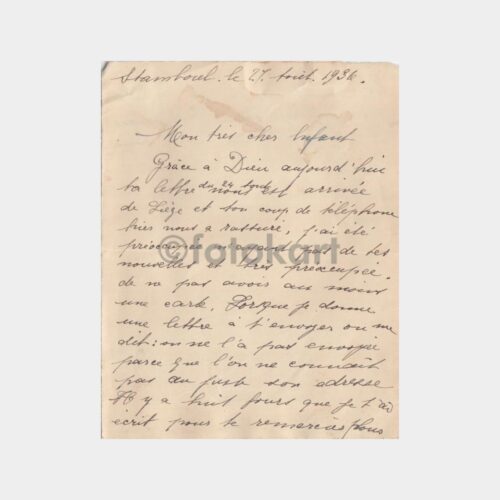 Stamboul. le 27. Août. 1936.
Mon très cher Enfant
Grâce à Dieu aujourd'hui
ta lettre du 24 Août nous est arrivée
de Liège et ton coup de téléphone
hier nous a rassuré, j'ai été
préoccupée n'ayant pas de tes
nouvelles et très préoccupée.
de ne pas avoir au moins
une carte. Lorsque je donne
une lettre à t'envoyer on me
dit: on ne l'a pas envoyée
parce que l'on ne connaît
pas au juste son adresse
Il y a huit jours que je t'ai
écrit pour te remercier
©fotokart